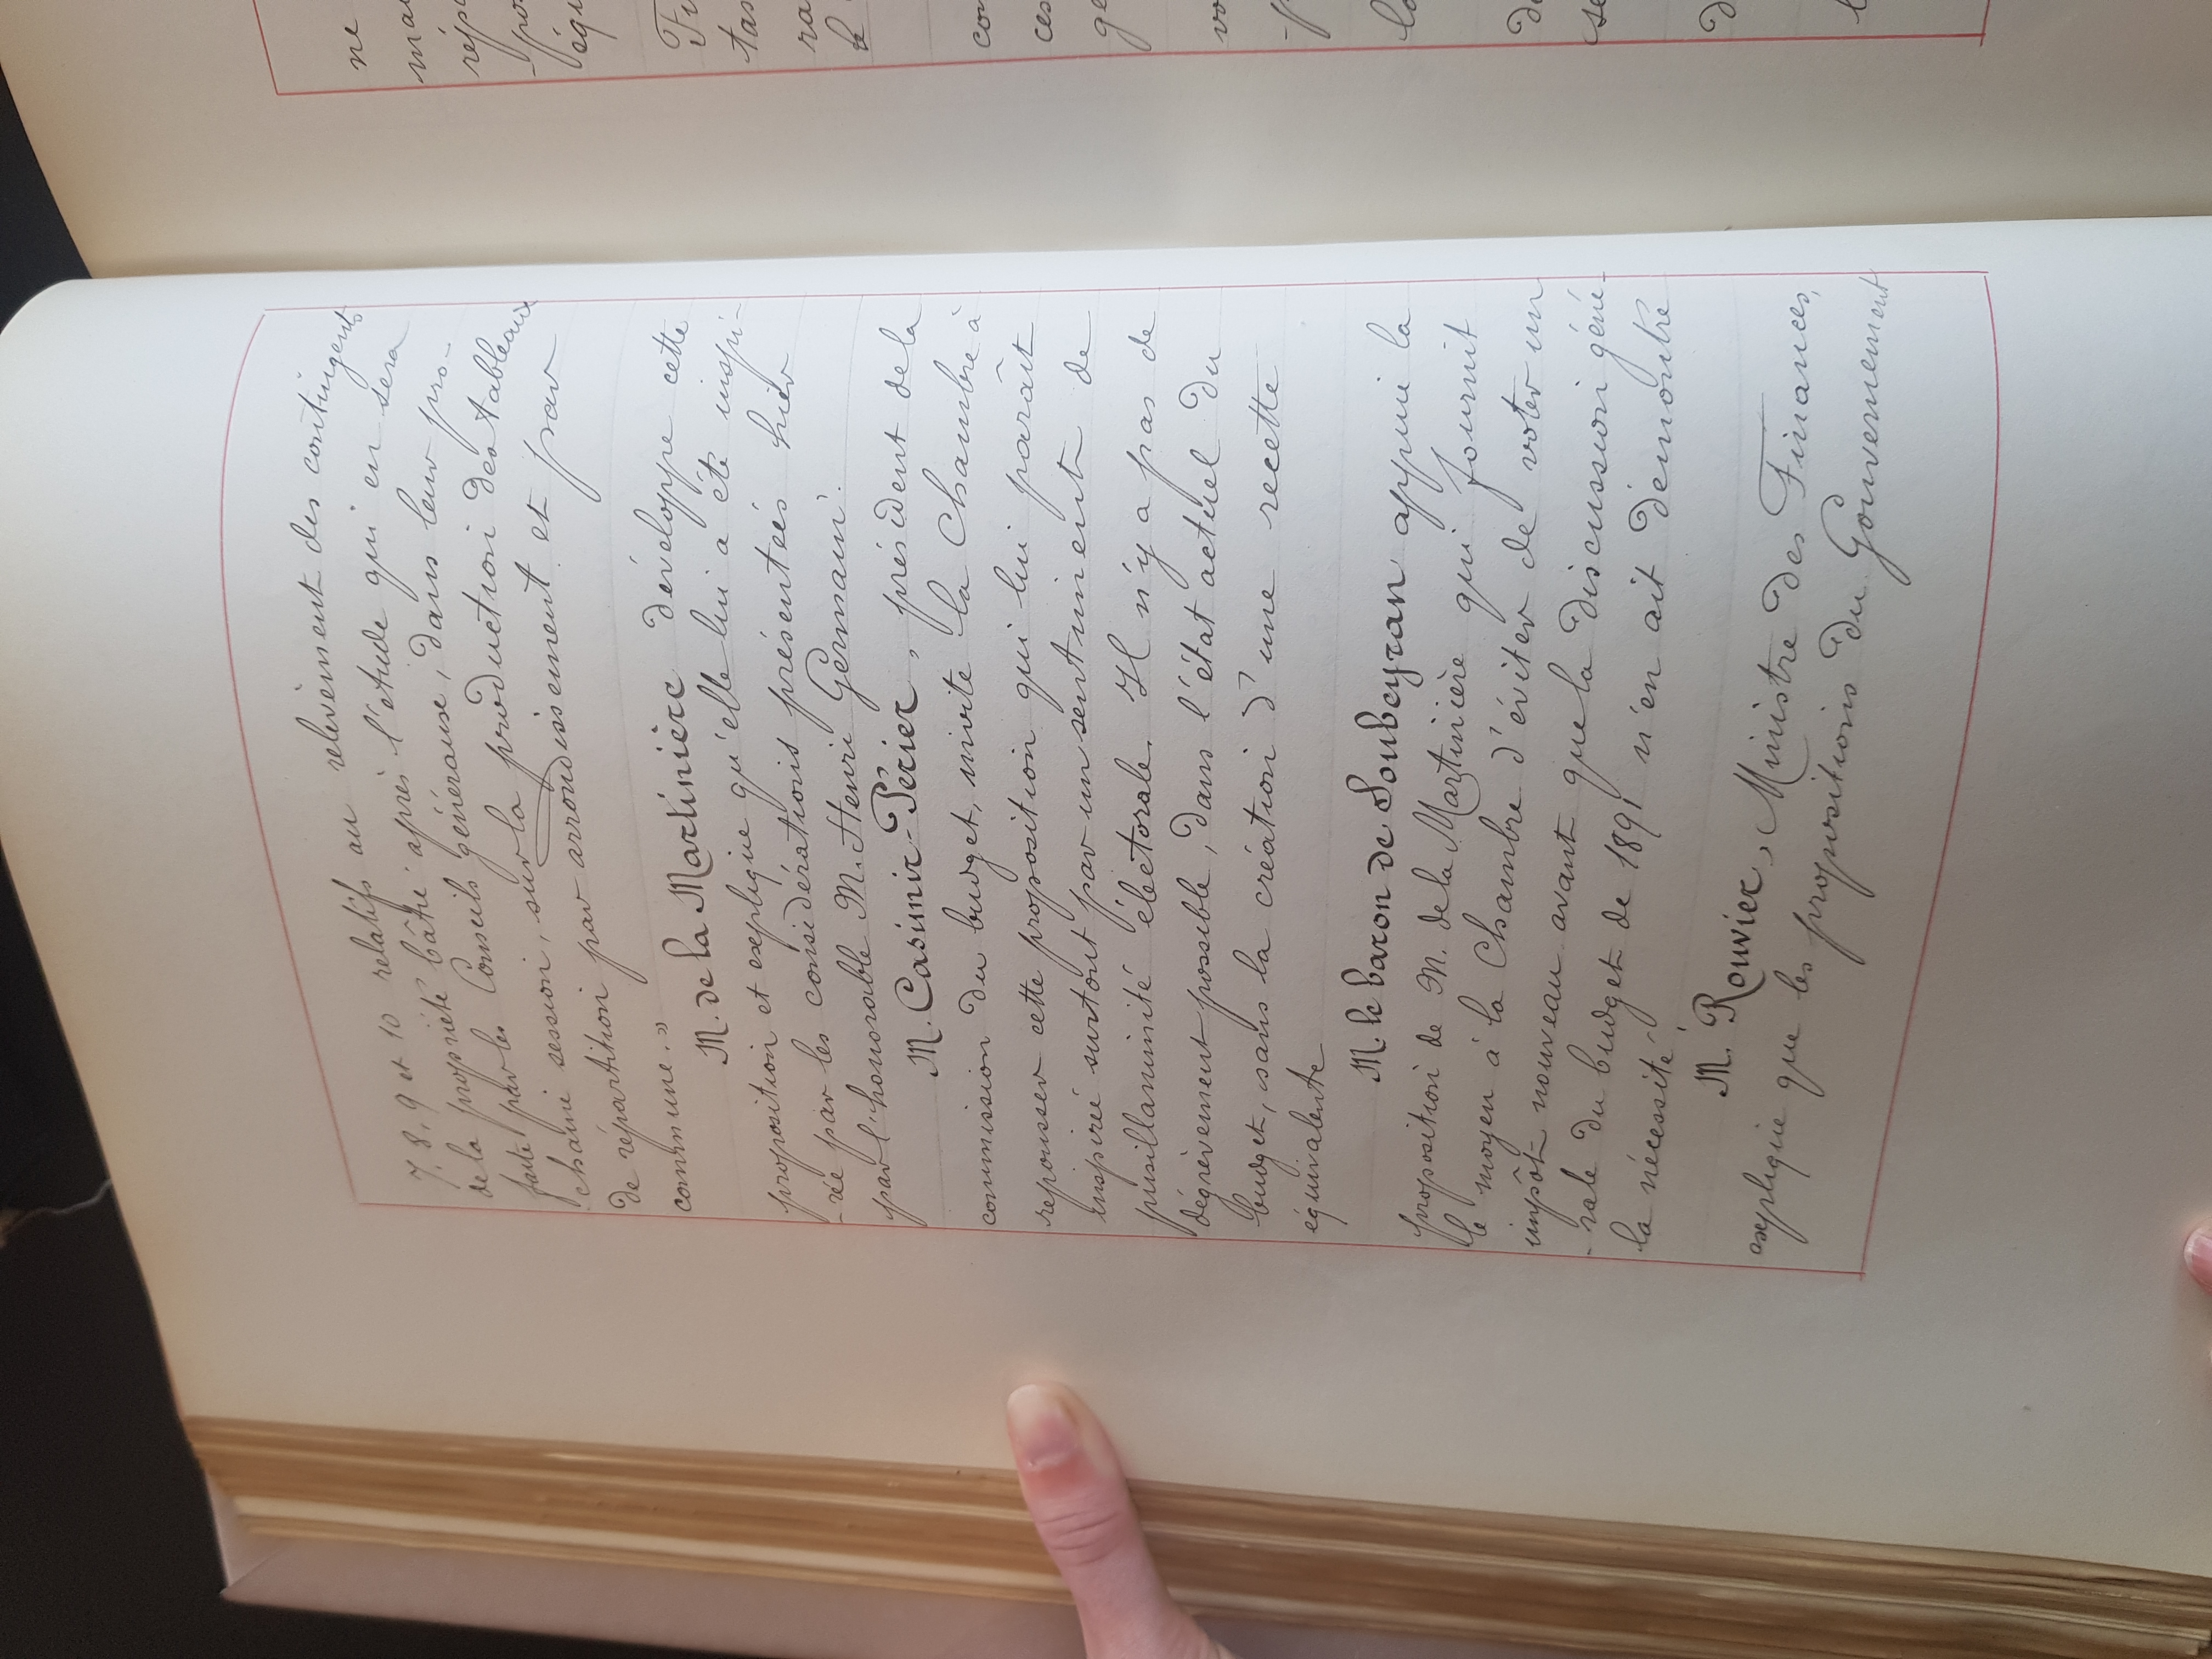 7, 8, 9 et 10 relatifs au relèvement des contingents
de la propriété bâtie après l'étude qui en sera
faite par les Conseils généraux, dans leur pro-
chaine session, sur la production des tableaux
de répartition par arrondissement et par
commune. »
M. de la Martinière développe cette
proposition et explique qu'elle lui a été inspi-
-rée par les considérations présentées hier
par l'honorable M. Henri Germain.
M. Casimir-Périer, président de la
commission du budget, invite la Chambre à
repousser cette proposition qui lui paraît
inspirée surtout par un sentiment de
pusillanimité électorale. Il n'y a pas de
dégrèvement possible, dans l'état actuel du
budget, sans la création d'une recette
équivalente
M. le baron de Soubeyran appuie la
proposition de M. de la Martinière qui fournit
le moyen à la Chambre d'éviter de voter un
impôt nouveau avant que la discussion géné-
-rale du budget de 1891 n'en ait démontré
la nécessité.
M. Rouvier, Ministre des Finances,
explique que les propositions du Gouvernement
ne
équ
tas
ra
le
ces
ge
vo